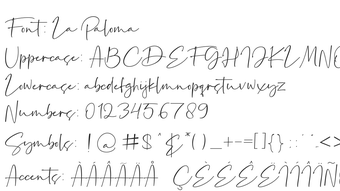 Font: La Paloma
Uppercase: ABCDEFGHIJKLMN
Lowercase: abcdefghijklmnopqrstuvwxyz
Numbers: 0123456789
Symbols: ! @ # $ ^ & * ( ) _ + - = [ ] { } : ; " ' . < >
Accents: ÀÁÂÃÄÅ ÇÈÉÊËÌÍÎÏÑ